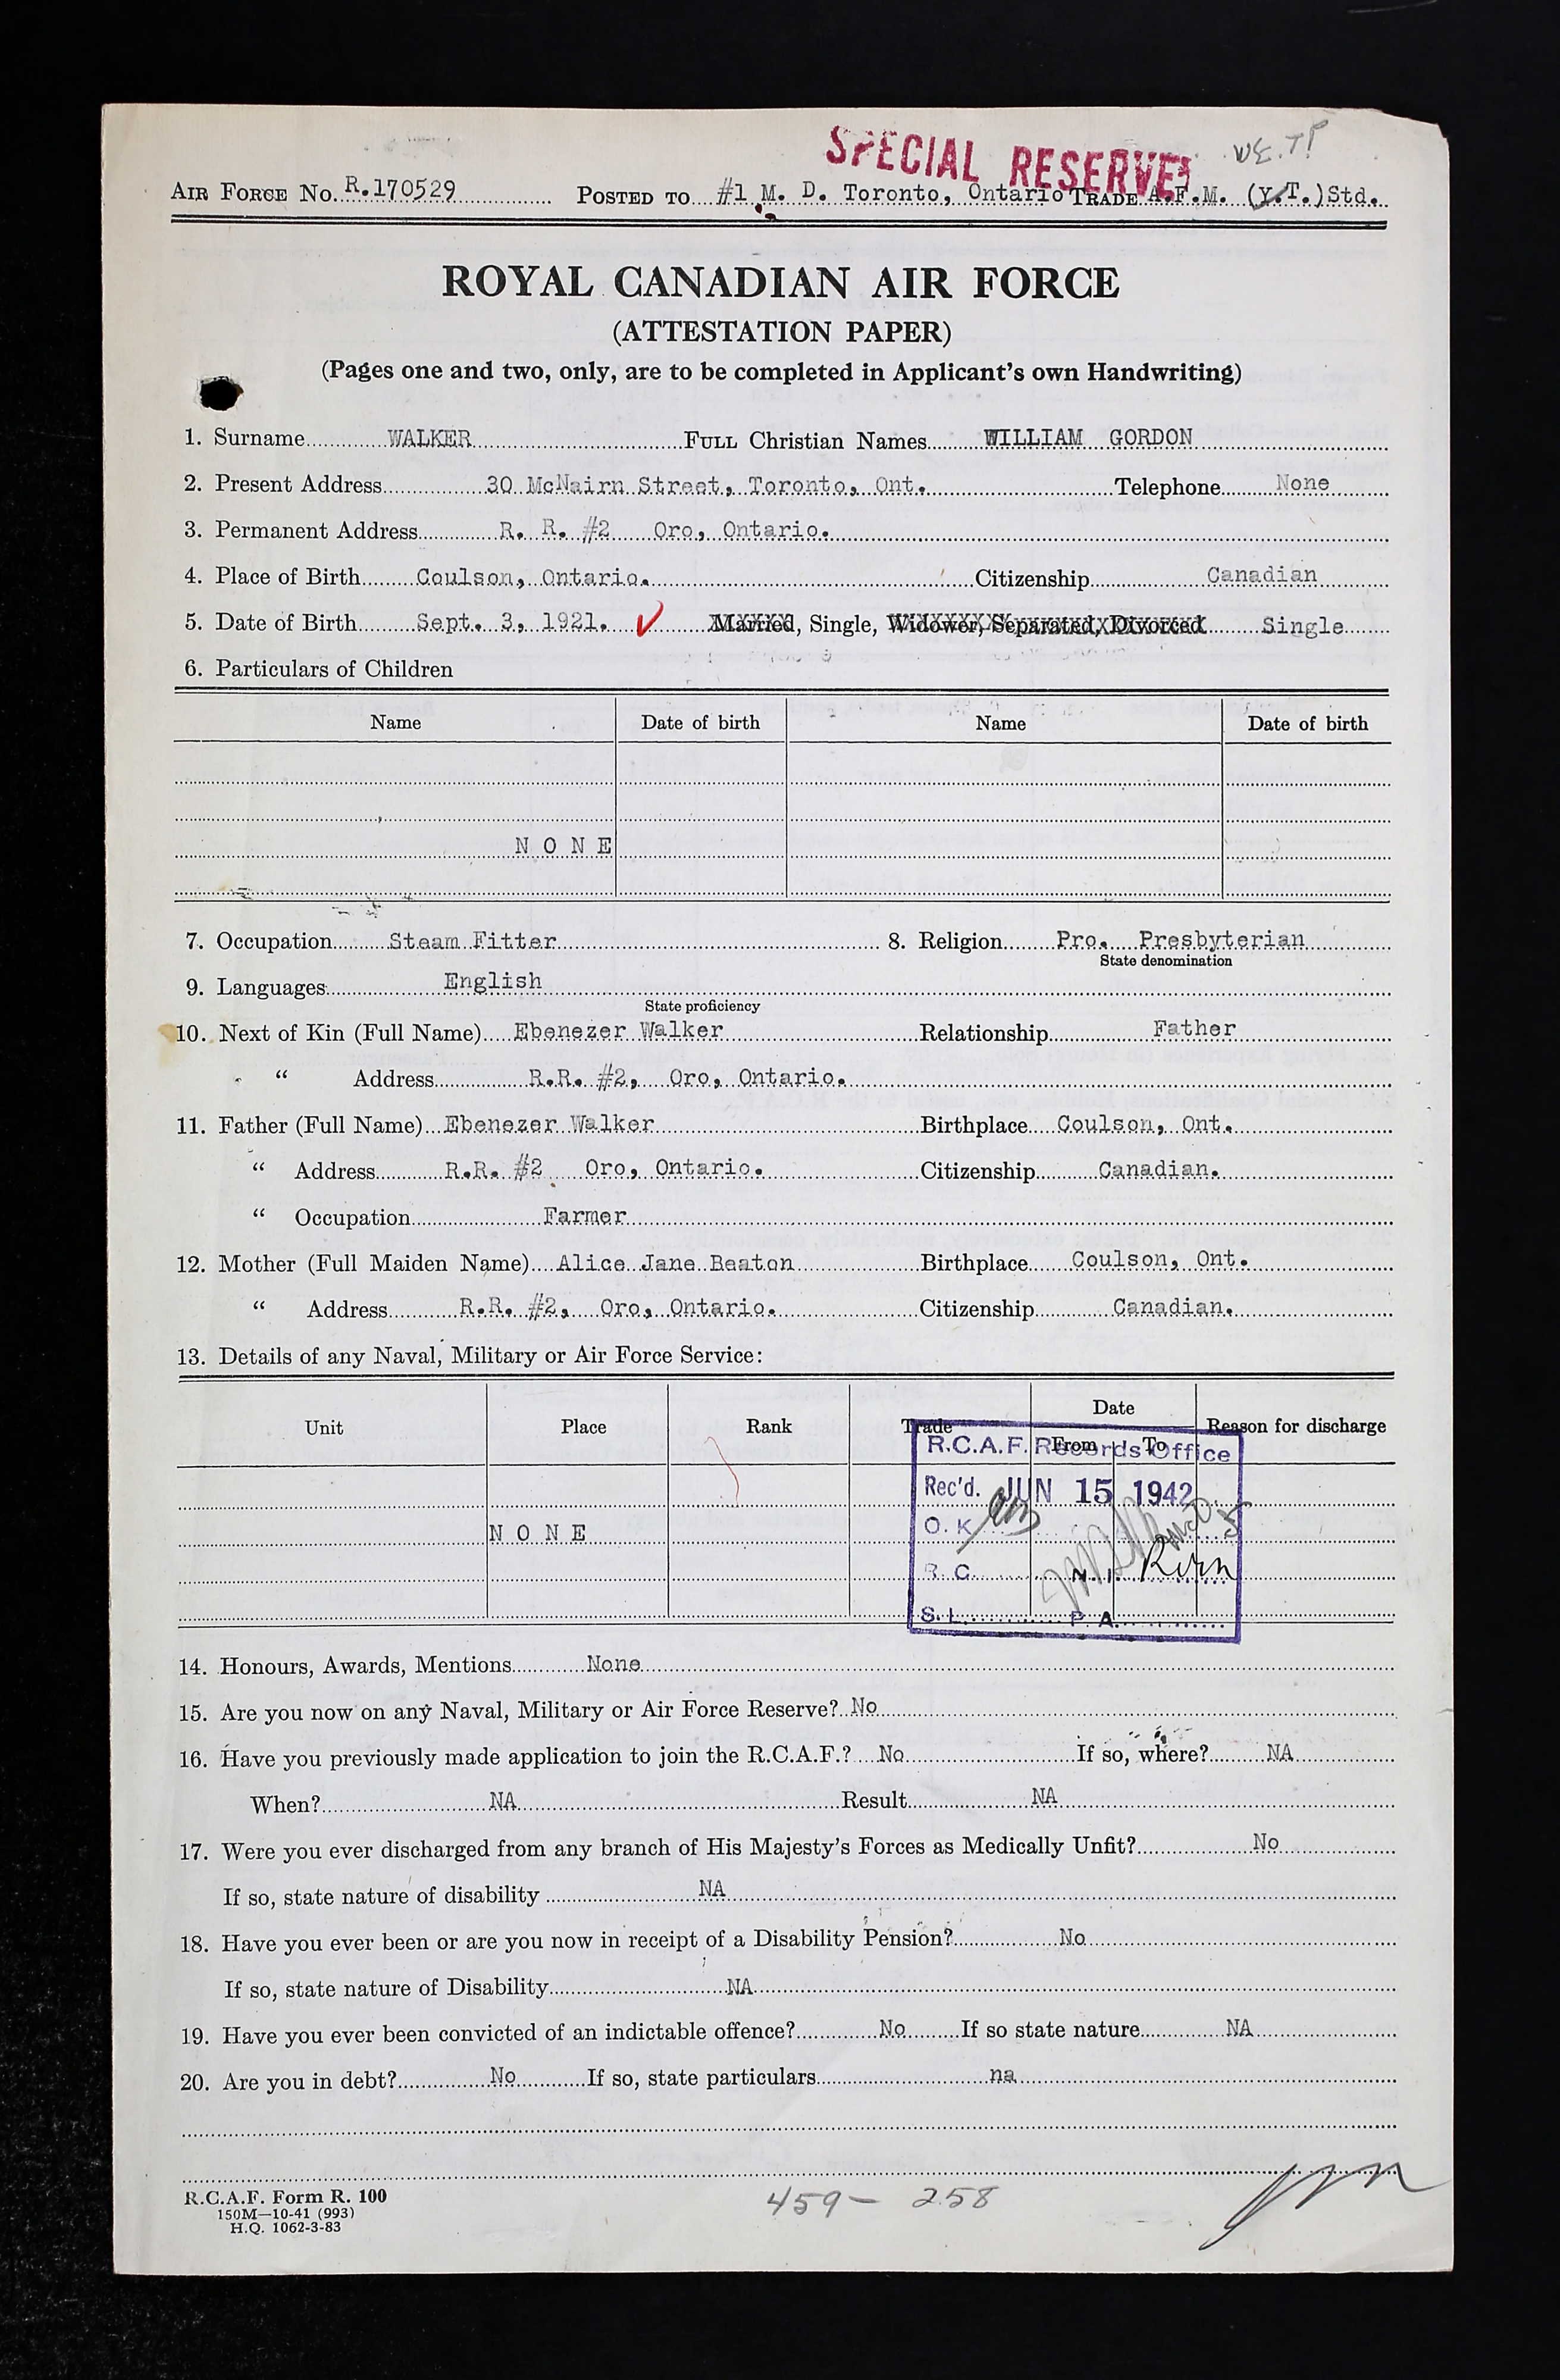 SPECIAL RESERVE
AIR FORCE NO. R.170529 POSTED TO #1 M. D. Toronto, Ontario TRADE A.F.M. (Y.T.)Std.
ROYAL CANADIAN AIR FORCE
(ATTESTATION PAPER)
(Pages one and two, only, are to be completed in Applicant's own Handwriting)
1. Surname WALKER FULL Christian Names WILLIAM GORDON
2. Present Address 30 McNairn Street, Toronto, Ont. Telephone None
3. Permanent Address R. R. #2 Oro, Ontario.
4. Place of Birth Coulson, Ontario. Citizenship Canadian
5. Date of Birth Sept. 3, 1921. Married, Single, Widower, Separated, Divorced Single
6. Particulars of Children
Name Date of birth Name Date of birth
N O N E
7. Occupation Steam Fitter 8. Religion Pro. Presbyterian
State denomination
9. Languages English
State proficiency
10. Next of Kin (Full Name) Ebenezer Walker Relationship Father
" Address R.R. #2, Oro, Ontario.
11. Father (Full Name) Ebenezer Walker Birthplace Coulson, Ont.
" Address R.R. #2 Oro, Ontario. Citizenship Canadian.
" Occupation Farmer
12. Mother (Full Maiden Name) Alice Jane Beaton Birthplace Coulson, Ont.
" Address R.R. #2, Oro, Ontario. Citizenship Canadian.
13. Details of any Naval, Military or Air Force Service:
Unit Place Rank Trade Date From To Reason for discharge
R.C.A.F. Records Office
Rec'd. JUN 15 1942
O. K.
N O N E
R. C. N. I.
S. L. P. A.
14. Honours, Awards, Mentions None
15. Are you now on any Naval, Military or Air Force Reserve? No
16. Have you previously made application to join the R.C.A.F.? No If so, where? NA
When? NA Result NA
17. Were you ever discharged from any branch of His Majesty's Forces as Medically Unfit? No
If so, state nature of disability NA
18. Have you ever been or are you now in receipt of a Disability Pension? No
If so, state nature of Disability NA
19. Have you ever been convicted of an indictable offence? No If so state nature NA
20. Are you in debt? No If so, state particulars na
R.C.A.F. Form R. 100
150M—10-41 (993)
H.Q. 1062-3-83
459 - 258